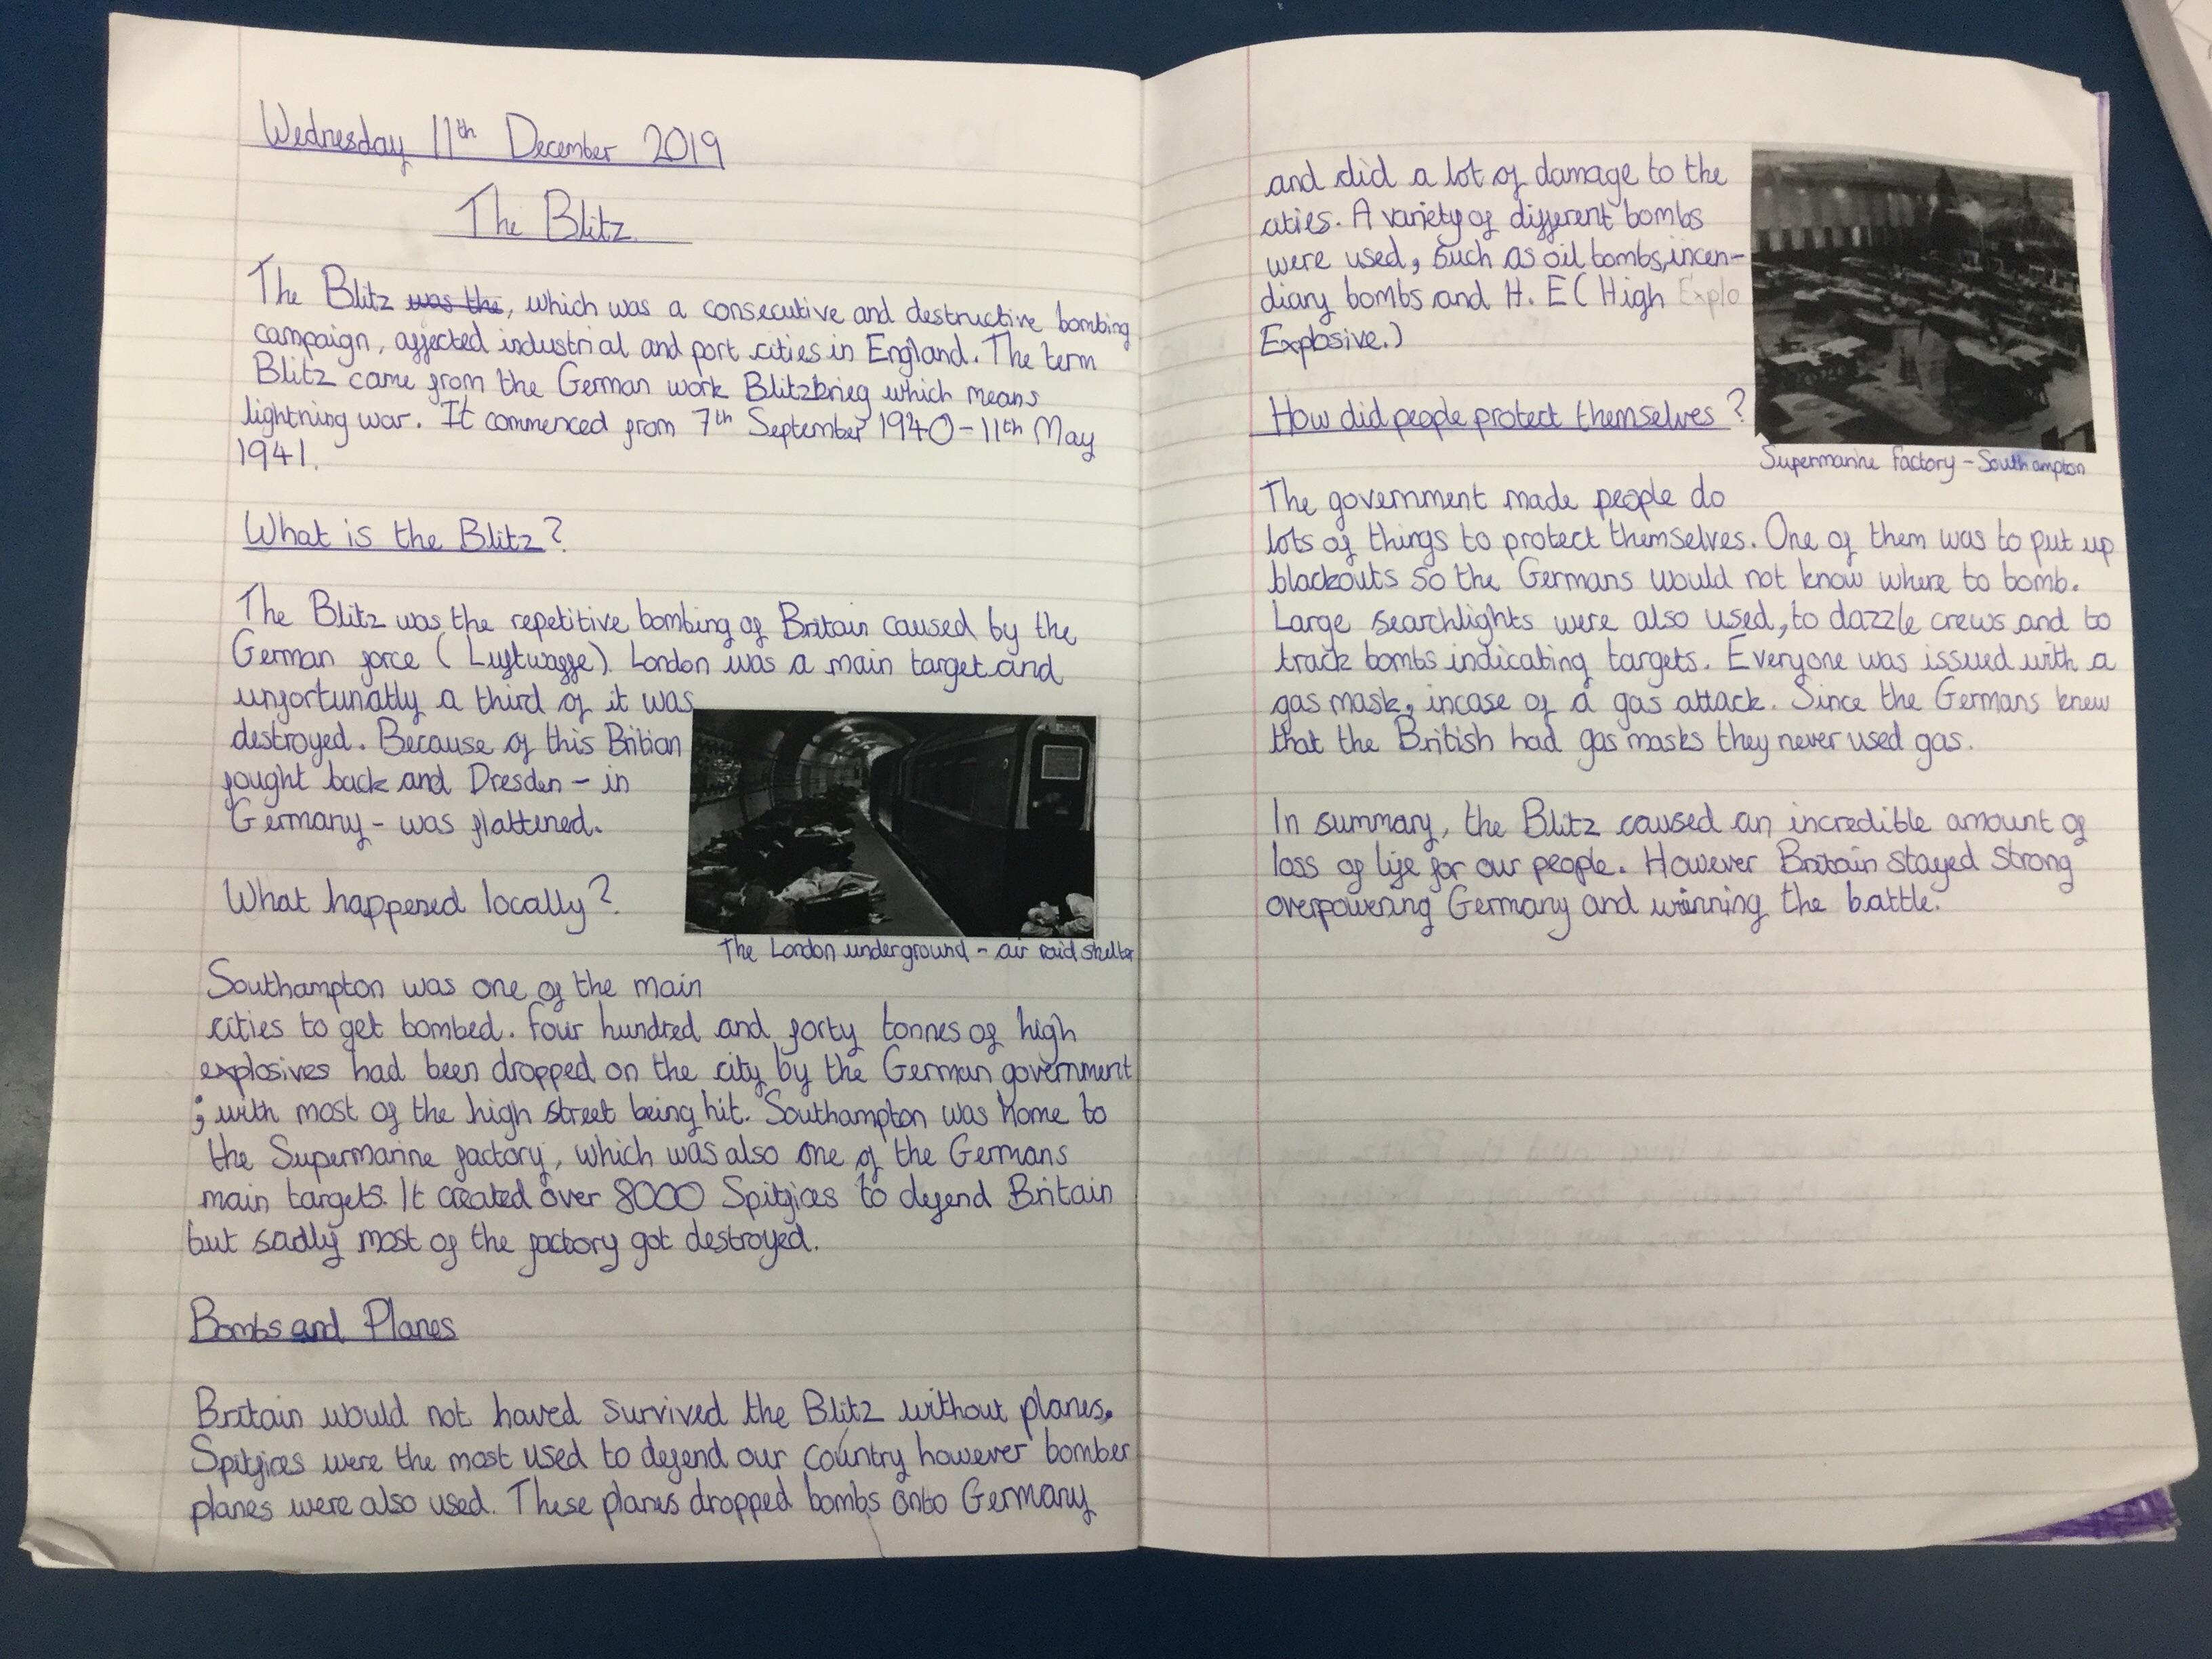 Wednesday 11th December 2019
The Blitz
The Blitz was the, which was a consecutive and destructive bombing
campaign, affected industrial and port cities in England. The term
Blitz came from the German work Blitzkrieg which means
lightning war. It commenced from 7th September 1940-11th May
1941.
What is the Blitz?
The Blitz was the repetitive bombing of Britain caused by the
German force (Luftwaffe). London was a main target and
unfortunatly a third of it was
destroyed. Because of this Britian
fought back and Dresden - in
Germany - was flattened.
The London underground - air raid shelter
What happened locally?
Southampton was one of the main
cities to get bombed. Four hundred and forty tonnes of high
explosives had been dropped on the city by the German government
; with most of the high street being hit. Southampton was home to
the Supermarine factory, which was also one of the Germans
main targets. It created over 8000 Spitfires to defend Britain
but sadly most of the factory got destroyed.
Bombs and Planes
Britain would not haved survived the Blitz without planes.
Spitfires were the most used to defend our country however bomber
planes were also used. These planes dropped bombs onto Germany
and did a lot of damage to the
cities. A variety of different bombs
were used, such as oil bombs, incen-
diary bombs and H. E ( High Explo
Explosive.)
Supermarine Factory - Southampton
How did people protect themselves?
The government made people do
lots of things to protect themselves. One of them was to put up
blackouts so the Germans would not know where to bomb.
Large searchlights were also used, to dazzle crews and to
track bombs indicating targets. Everyone was issued with a
gas mask, incase of a gas attack. Since the Germans knew
that the British had gas masks they never used gas.
In summary, the Blitz caused an incredible amount of
loss of life for our people. However Britain stayed strong
overpowering Germany and winning the battle.